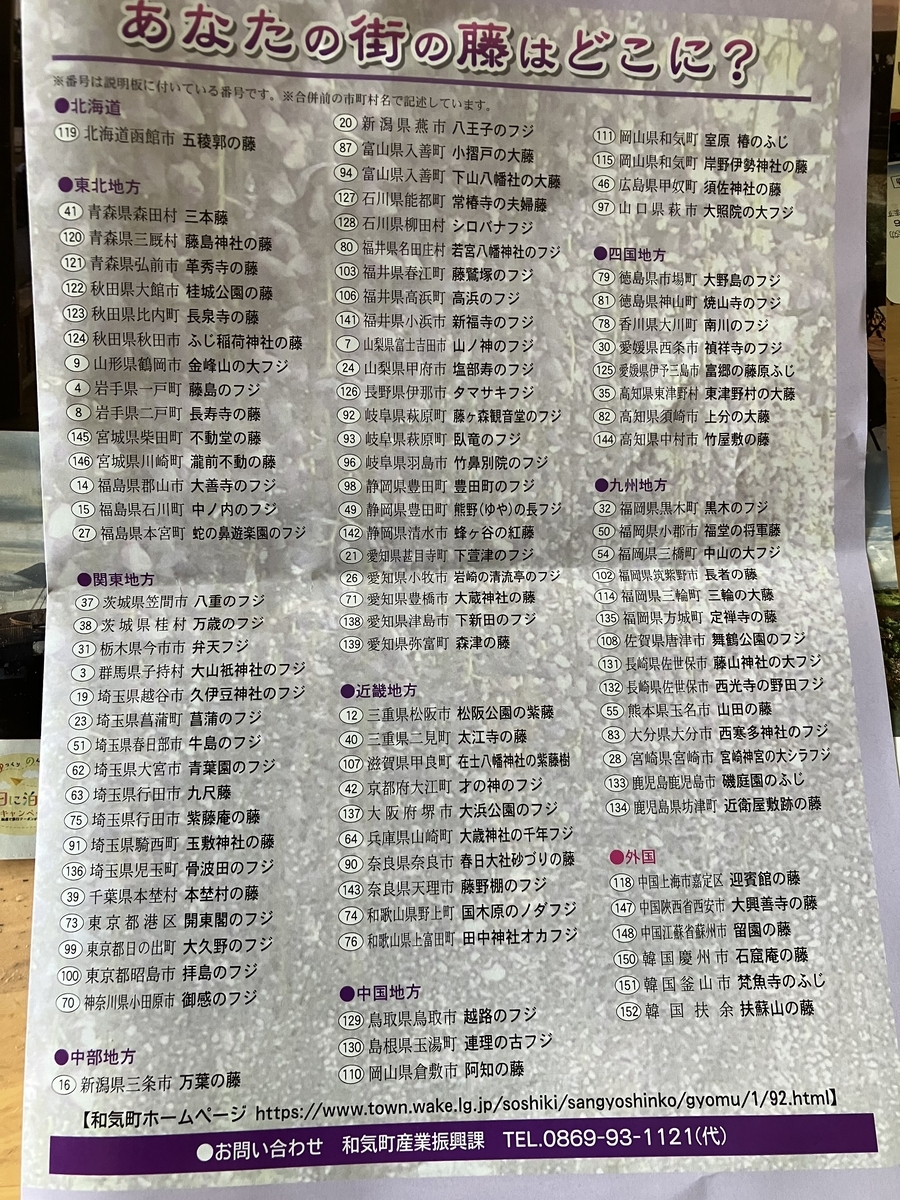 あなたの街の藤はどこに？
※番号は説明板に付いている番号です。※合併前の市町村名で記述しています。
●北海道
119 北海道函館市 五稜郭の藤
●東北地方
41 青森県森田村 三本藤
120 青森県三厩村 藤島神社の藤
121 青森県弘前市 革秀寺の藤
122 秋田県大館市 桂城公園の藤
123 秋田県比内町 長泉寺の藤
124 秋田県秋田市 ふじ稲荷神社の藤
9 山形県鶴岡市 金峰山の大フジ
4 岩手県一戸町 藤島のフジ
8 岩手県二戸町 長寿寺の藤
145 宮城県柴田町 不動堂の藤
146 宮城県川崎町 瀧前不動の藤
14 福島県郡山市 大善寺のフジ
15 福島県石川町 中ノ内のフジ
27 福島県本宮町 蛇の鼻遊楽園のフジ
●関東地方
37 茨城県笠間市 八重のフジ
38 茨城県桂村 万歳のフジ
31 栃木県今市市 弁天フジ
3 群馬県子持村 大山祇神社のフジ
19 埼玉県越谷市 久伊豆神社のフジ
23 埼玉県菖蒲町 菖蒲のフジ
51 埼玉県春日部市 牛島のフジ
62 埼玉県大宮市 青葉園のフジ
63 埼玉県行田市 九尺藤
75 埼玉県行田市 紫藤庵の藤
91 埼玉県騎西町 玉敷神社の藤
136 埼玉県児玉町 骨波田のフジ
39 千葉県本埜村 本埜村の藤
73 東京都港区 開東閣のフジ
99 東京都日の出町 大久野のフジ
100 東京都昭島市 拝島のフジ
70 神奈川県小田原市 御感のフジ
●中部地方
16 新潟県三条市 万葉の藤
20 新潟県燕市 八王子のフジ
87 富山県入善町 小摺戸の大藤
94 富山県入善町 下山八幡社の大藤
127 石川県能都町 常椿寺の夫婦藤
128 石川県柳田村 シロバナフジ
80 福井県名田庄村 若宮八幡神社のフジ
103 福井県春江町 藤鷲塚のフジ
106 福井県高浜町 高浜のフジ
141 福井県小浜市 新福寺のフジ
7 山梨県富士吉田市 山ノ神のフジ
24 山梨県甲府市 塩部寿のフジ
126 長野県伊那市 タマサキフジ
92 岐阜県萩原町 藤ヶ森観音堂のフジ
93 岐阜県萩原町 臥竜のフジ
96 岐阜県羽島市 竹鼻別院のフジ
98 静岡県豊田町 豊田町のフジ
49 静岡県豊田町 熊野(ゆや)の長フジ
142 静岡県清水市 蜂ヶ谷の紅藤
21 愛知県甚目寺町 下萱津のフジ
26 愛知県小牧市 岩崎の清流亭のフジ
71 愛知県豊橋市 大蔵神社の藤
138 愛知県津島市 下新田のフジ
139 愛知県弥富町 森津の藤
●近畿地方
12 三重県松阪市 松阪公園の紫藤
40 三重県二見町 太江寺の藤
107 滋賀県甲良町 在士八幡神社の紫藤樹
42 京都府大江町 才の神のフジ
137 大阪府堺市 大浜公園のフジ
64 兵庫県山崎町 大歳神社の千年フジ
90 奈良県奈良市 春日大社砂づりの藤
143 奈良県天理市 藤野棚のフジ
74 和歌山県野上町 国木原のノダフジ
76 和歌山県上富田町 田中神社オカフジ
●中国地方
129 鳥取県鳥取市 越路のフジ
130 島根県玉湯町 連理の古フジ
110 岡山県倉敷市 阿知の藤
111 岡山県和気町 室原 椿のふじ
115 岡山県和気町 岸野伊勢神社の藤
46 広島県甲奴町 須佐神社の藤
97 山口県萩市 大照院の大フジ
●四国地方
79 徳島県市場町 大野島のフジ
81 徳島県神山町 焼山寺のフジ
78 香川県大川町 南川のフジ
30 愛媛県西条市 禎祥寺のフジ
125 愛媛県伊予三島市 富郷の藤原ふじ
35 高知県東津野村 東津野村の大藤
82 高知県須崎市 上分の大藤
144 高知県中村市 竹屋敷の藤
●九州地方
32 福岡県黒木町 黒木のフジ
50 福岡県小郡市 福堂の将軍藤
54 福岡県三橋町 中山の大フジ
102 福岡県筑紫野市 長者の藤
114 福岡県三輪町 三輪の大藤
135 福岡県方城町 定禅寺の藤
108 佐賀県唐津市 舞鶴公園のフジ
131 長崎県佐世保市 藤山神社の大フジ
132 長崎県佐世保市 西光寺の野田フジ
55 熊本県玉名市 山田の藤
83 大分県大分市 西寒多神社のフジ
28 宮崎県宮崎市 宮崎神宮の大シラフジ
133 鹿児島鹿児島市 磯庭園のふじ
134 鹿児島県坊津町 近衛屋敷跡の藤
●外国
118 中国上海市嘉定区 迎賓館の藤
147 中国陝西省西安市 大興善寺の藤
148 中国江蘇省蘇州市 留園の藤
150 韓国慶州市 石窟庵の藤
151 韓国釜山市 梵魚寺のふじ
152 韓国扶余 扶蘇山の藤
【和気町ホームページ https://www.town.wake.lg.jp/soshiki/sangyoshinko/gyomu/1/92.html】
●お問い合わせ 和気町産業振興課 TEL.0869-93-1121(代)